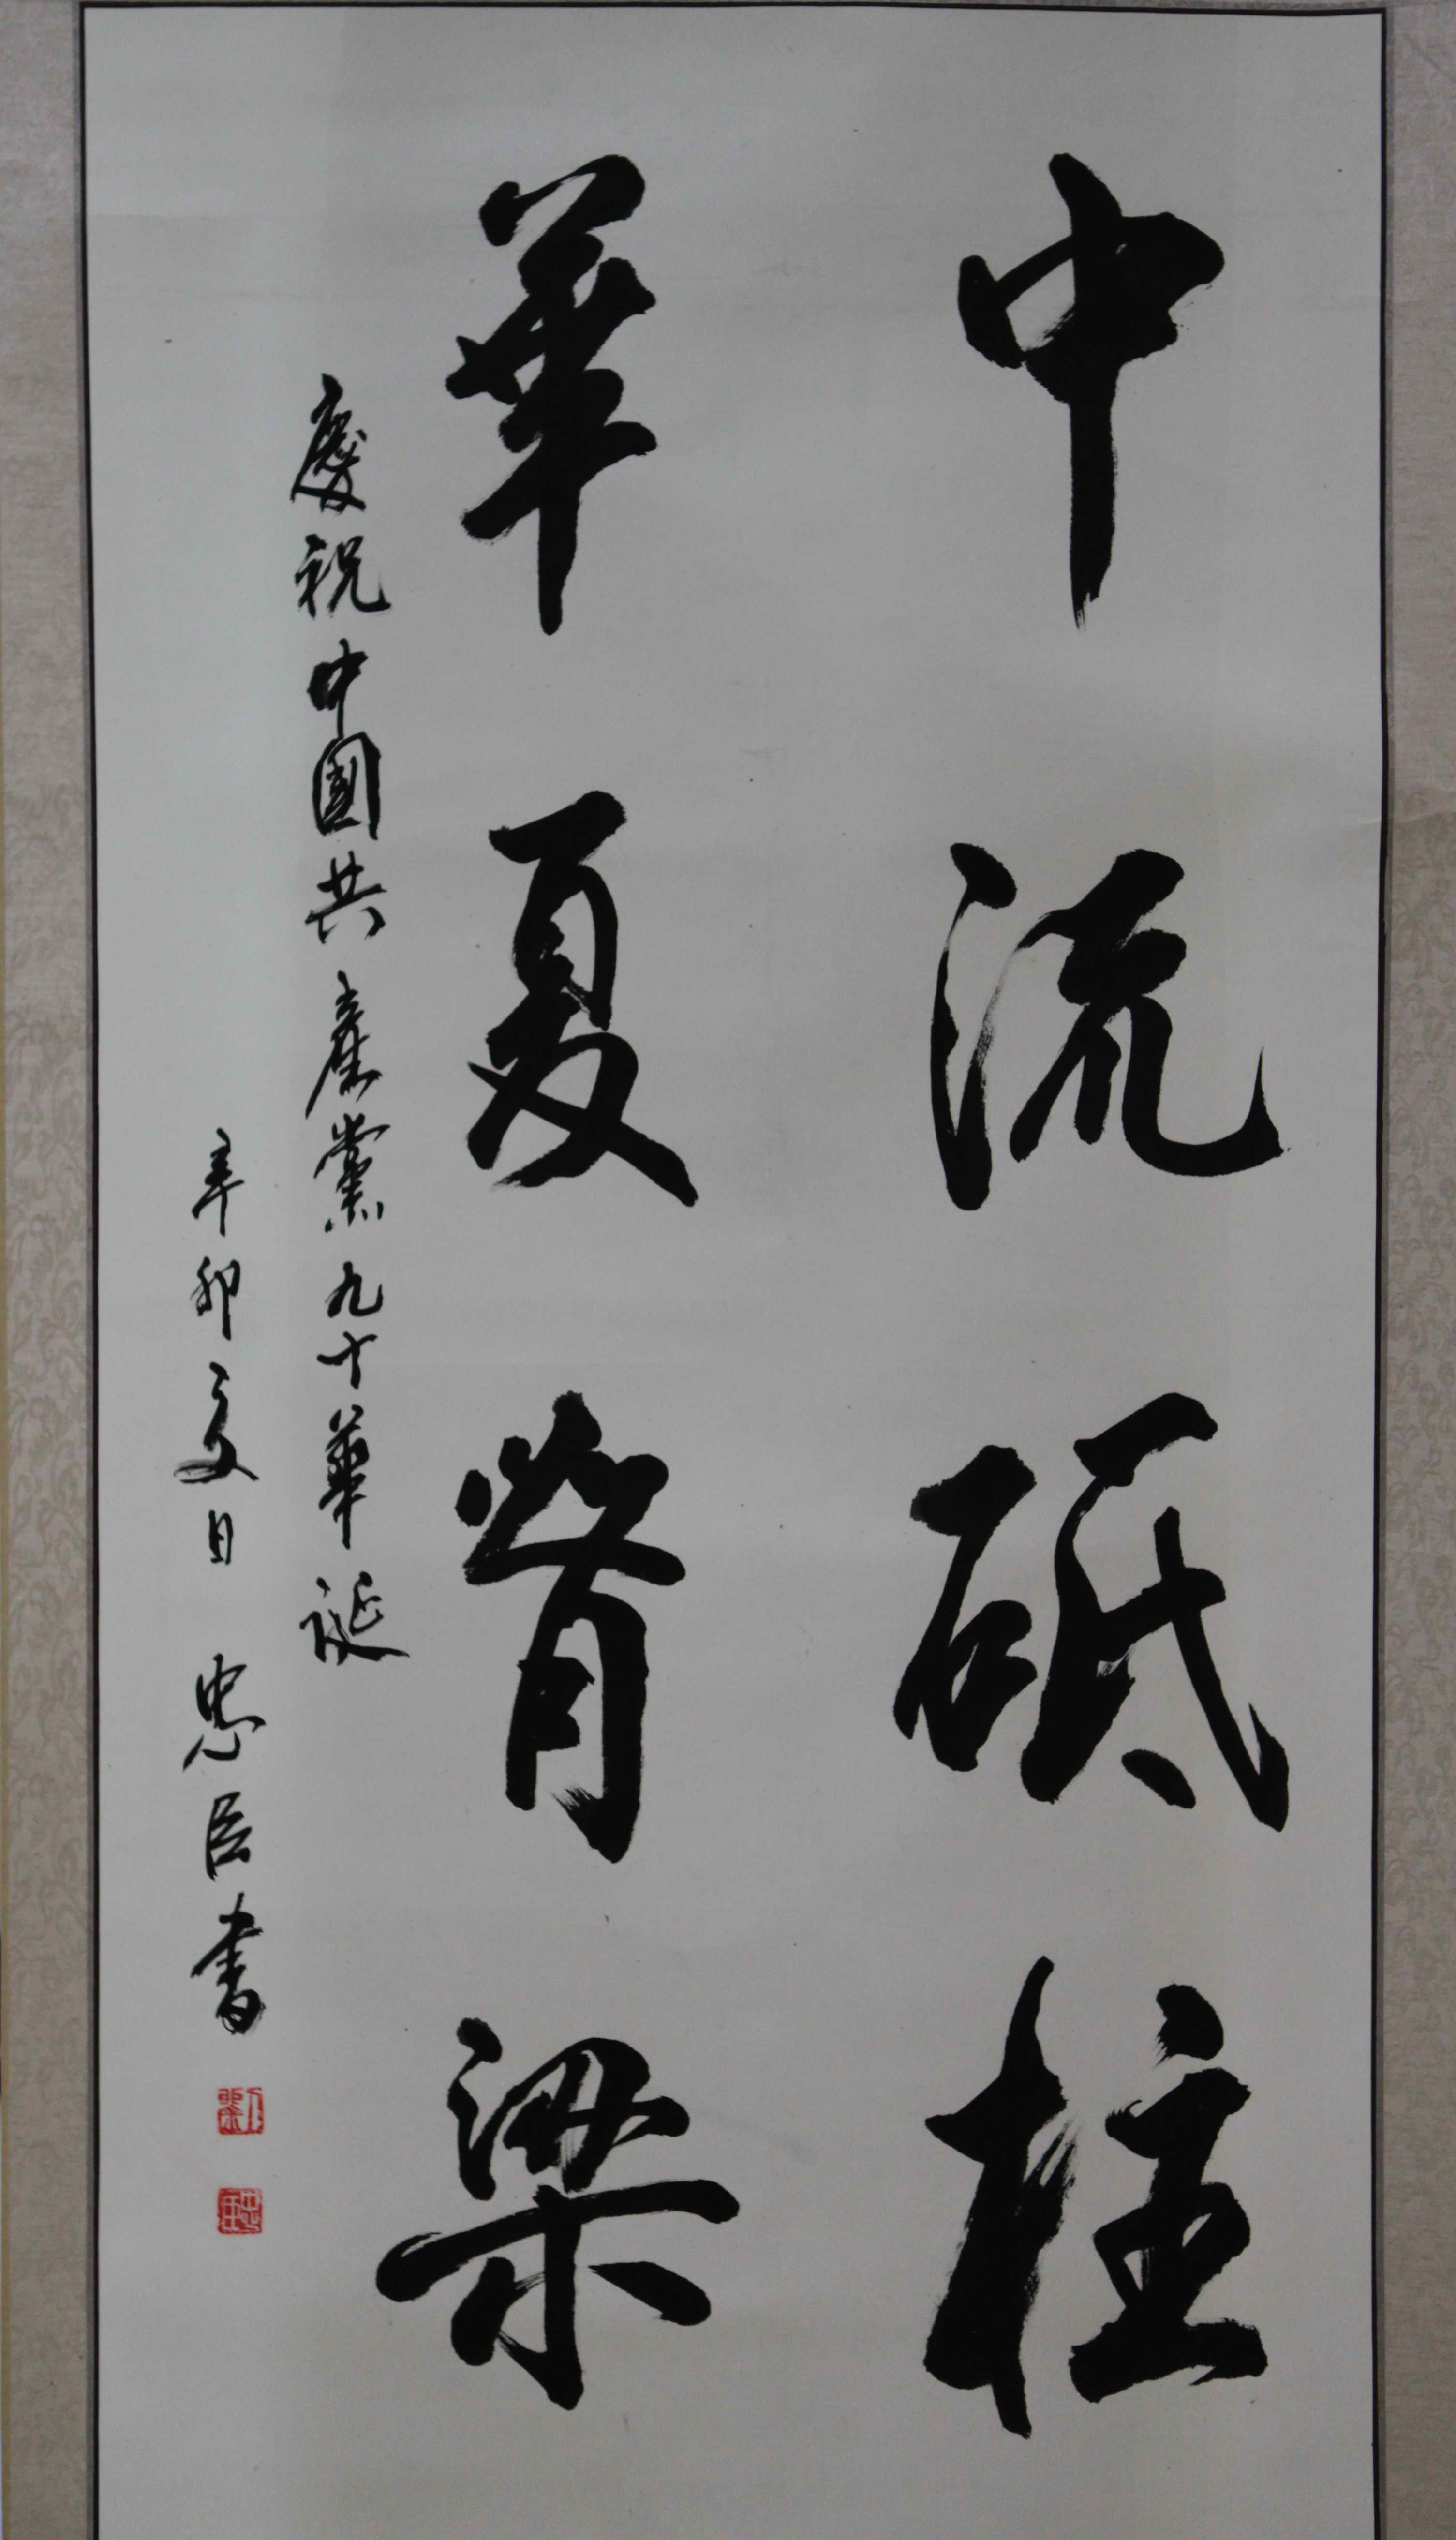 中流砥柱
華夏脊梁
慶祝中國共產黨九十華誕
辛卯夏日 忠臣書